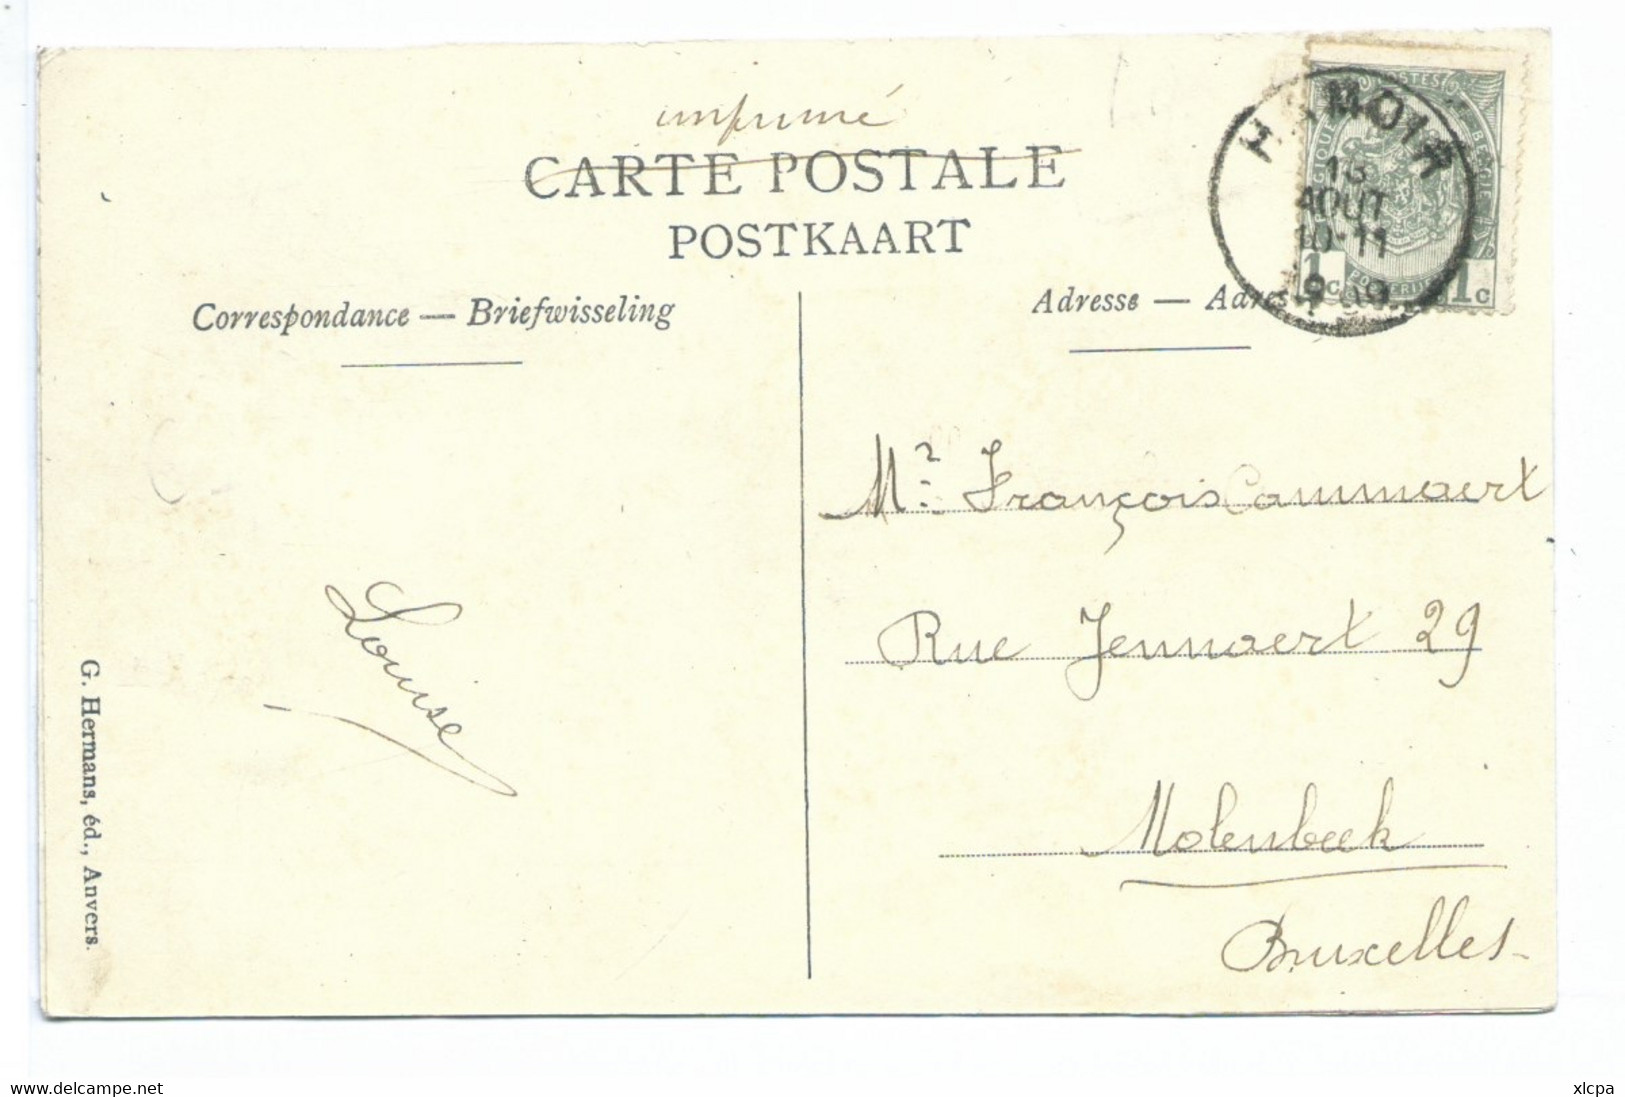 imprimé
CARTE POSTALE
POSTKAART
Correspondance — Briefwisseling
Adresse — Adres
HAMOIR
AOUT
10-11
POSTES
1c
1c
Mr. François Cammaert
Rue Jennaert 29
Molenbeek
Bruxelles
Louise
G. Hermans, éd., Anvers.
www.delcampe.net
xlcpa